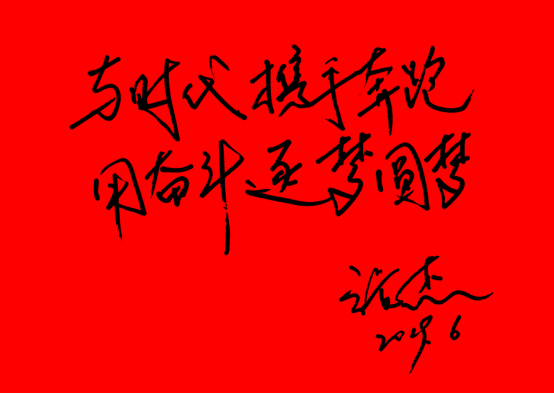 与时代携手奔跑
用奋斗逐梦圆梦